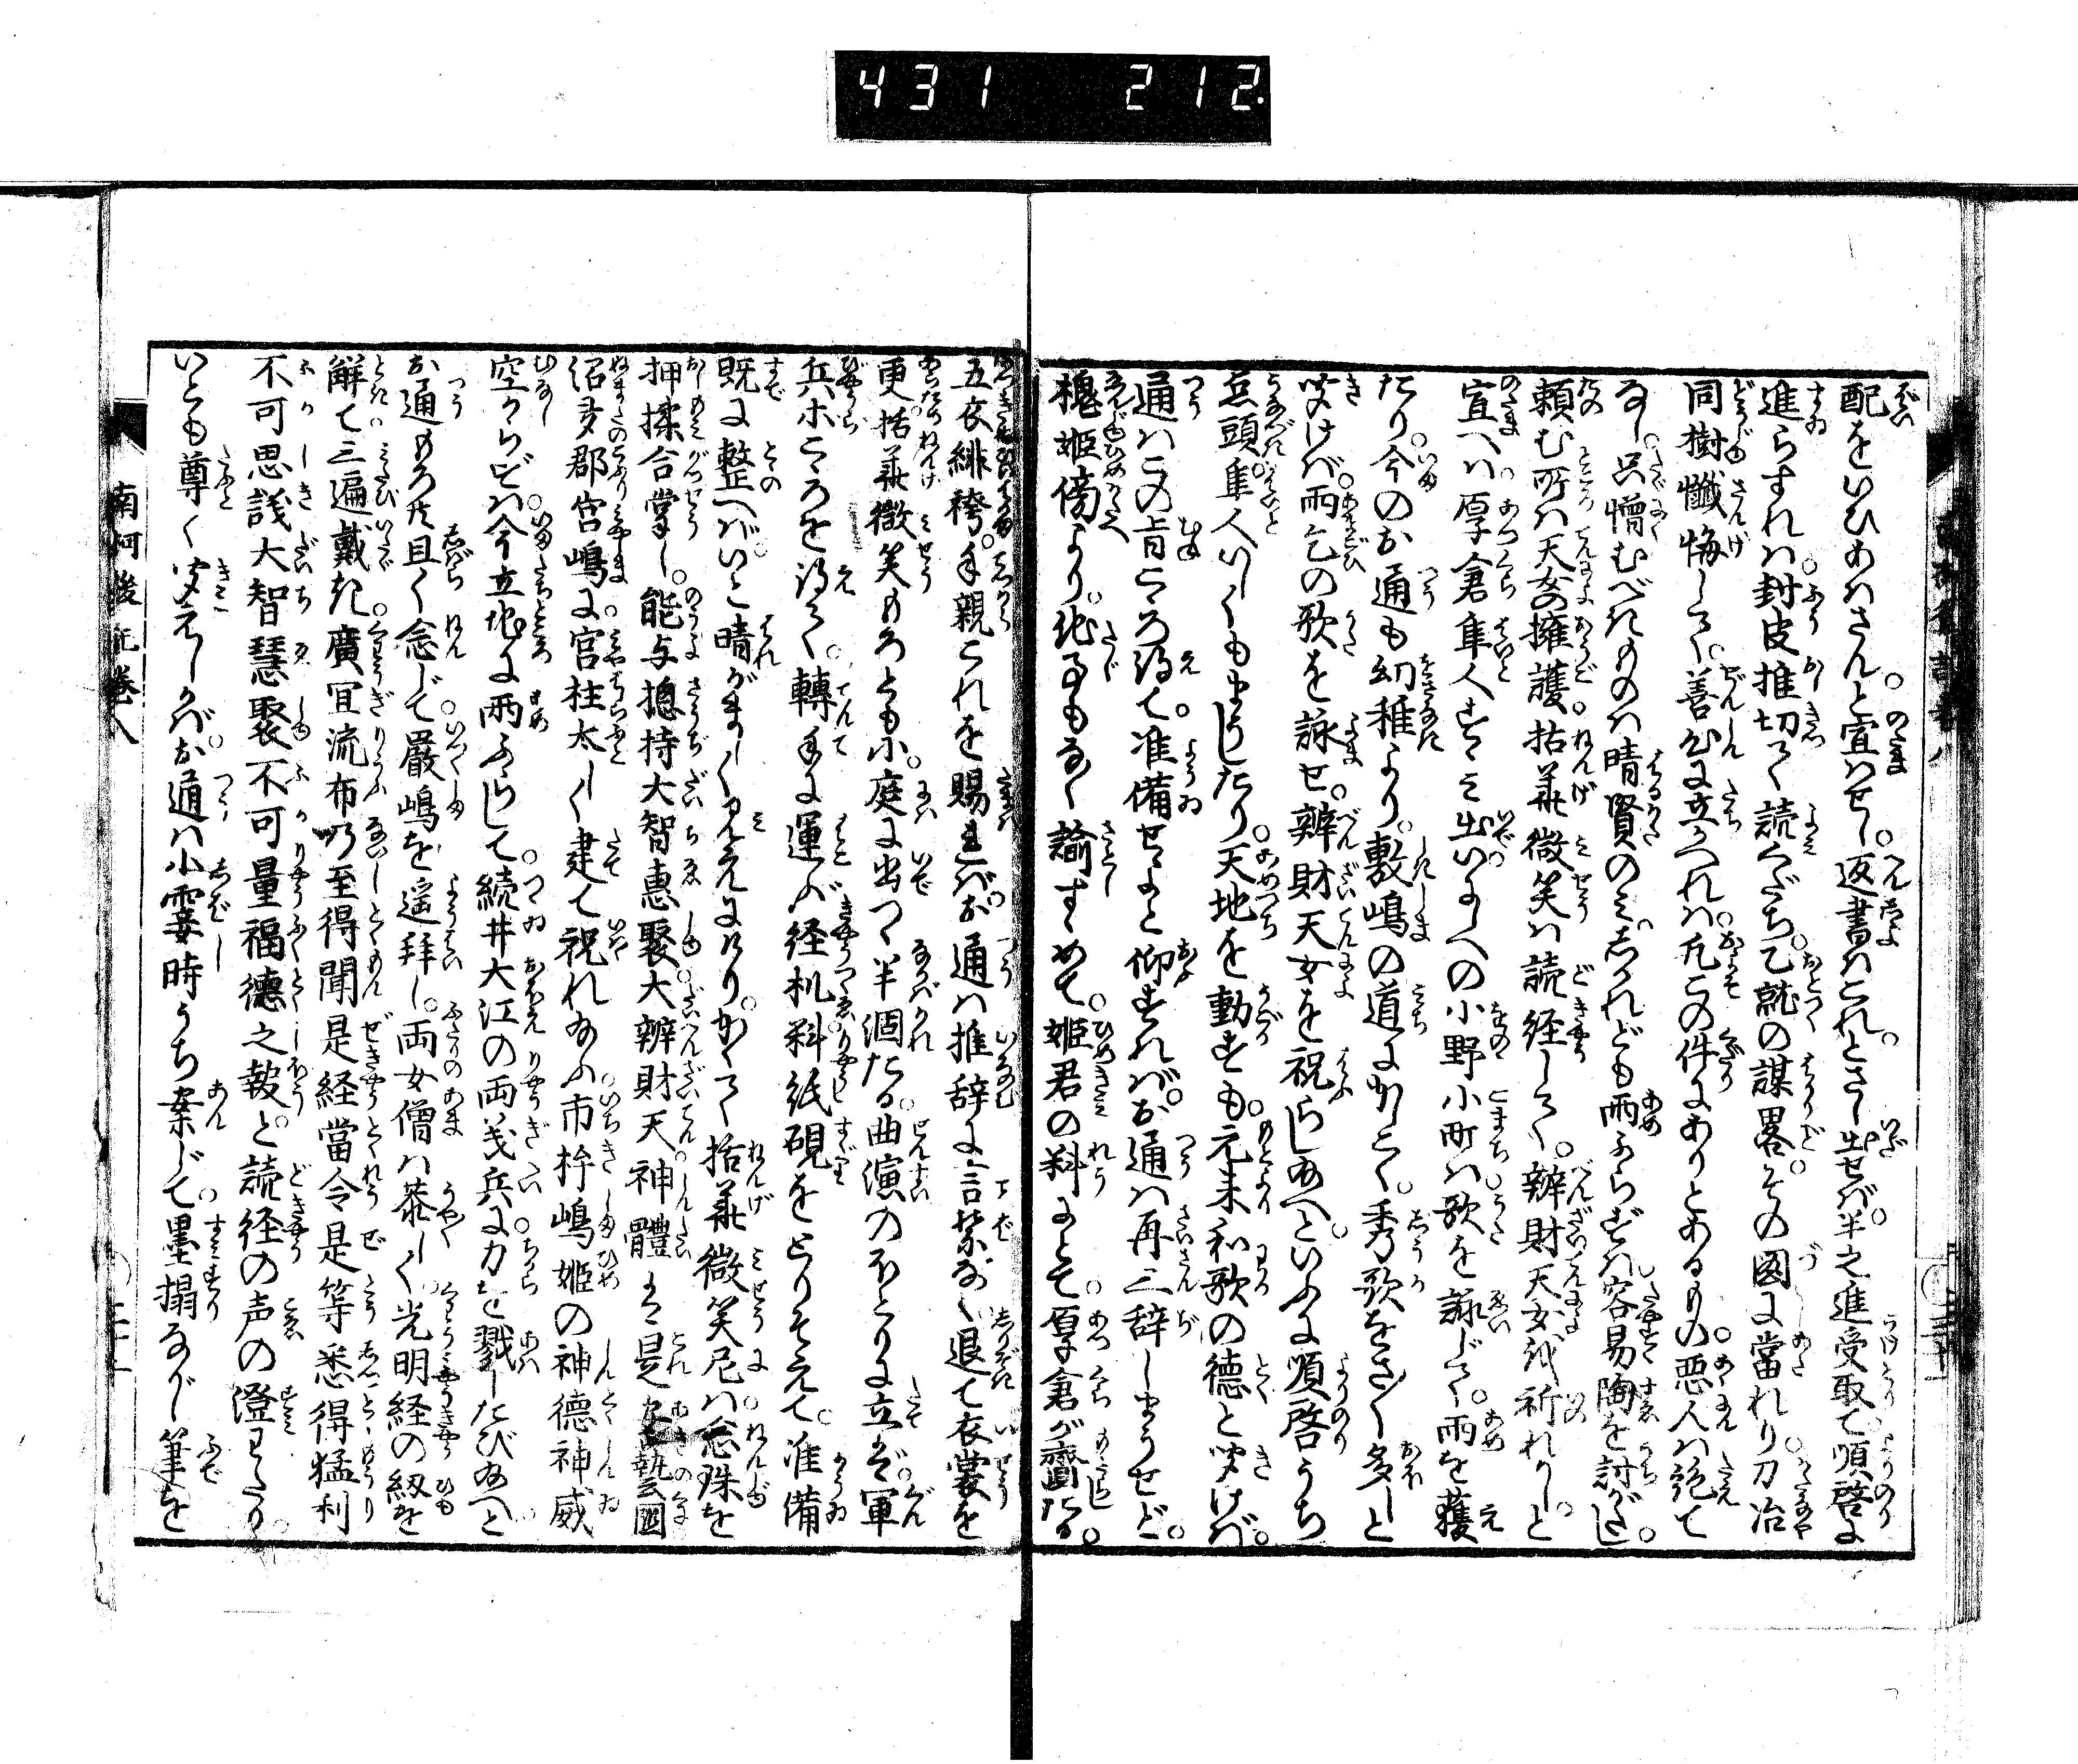 431 212.
配をいひあはさんと宣はせし。返書はこれとさし出せば。半之進受取て順啓に
進らすれば。封皮推切て読くだち。乙就の謀畧。その図に當れり。刀冶
同樹懺悔して。善心に立かへれば。凡この件にありとあるものゝ。悪人は絶て
なし。只憎むべきものは晴賢のみ。しかれども雨ふらずは容易陶を討がたし。
頼む所は天女の擁護。拈華微笑は読経して。辨財天女を祈れかしと
宣へば。厚倉隼人すゝみ出。いにしへの小野小町は。歌を詠じて。雨を獲
たり。今のお通も幼稚より。敷嶋の道にかしこく。秀歌をさ〳〵多しと
聞けば。雨乞の歌を詠せ。辨財天女を祝らし給へといふに順啓うち
点頭。隼人いしくもまうしたり。天地を動すも。元来和歌の徳と聞けば。
通はこの旨こゝろ得て。准備せよと仰すれば。お通は再三辞しまうせど。
槐姫傍より。他事もなく諭すゝめて。姫君の料にとて。厚倉が齎たる。
五衣緋袴。手親これを賜はれば。お通は推辞に言葉なく。退て衣裳を
更。拈華微笑もろとも。小庭に出つ。半涸たる。曲演のほとりに立ば。軍
兵ホこゝろを得て。轉手に運ぶ経机。料紙硯をとりそえて。准備
既に整へば。いと晴がましく見えにけり。かくて拈華微笑尼は。念珠を
押揉合掌し。能与揔持大智恵聚。大辨財天神體は。是安藝國
沼多郡宮嶋に。宮柱太しく建て祝れ給ふ。市杵嶋姫の神徳神威
空からずは。今立地に雨ふらして。続井大江の両義兵に。力を戮したび給へと。
お通もろ共且く念じて。嚴嶋を遥拝し。両女僧は恭しく。光明経の紐を
觧て三遍戴き。廣冝流布乃至得聞是経當令是等悉得猛利
不可思議大智慧聚不可量福徳之報と。読経の声の澄わたり。
いとも尊く聞えしかば。お通は小霎時うち案じて。墨搨ながし筆を
南柯後記巻八